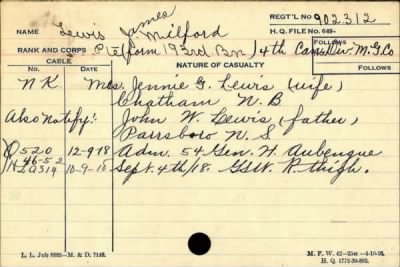 James
REGT'L No 902312
NAME Lewis, Milford
H. Q. FILE No. 649-
RANK AND CORPS Pte (form 193rd Bn) 4th Can. Div. M.G. Co
FOLLOWS
CABLE
No. DATE NATURE OF CASUALTY FOLLOWS
N.K. Mrs. Jennie G. Lewis (wife)
Chatham N.B
Also Notify:- John W. Lewis (father)
Parrsboro N.S
Q 520 12-9-18 Adm. 54 Gen. H. Aubengue
46-52
HQ 314 10-9-18 Sept. 4th/18. GSW. R. thigh.
L. L. Job 8885—M. & D. 7146.
M. F. W. 42—25M—4-10-16.
H. Q. 1772-39-893.